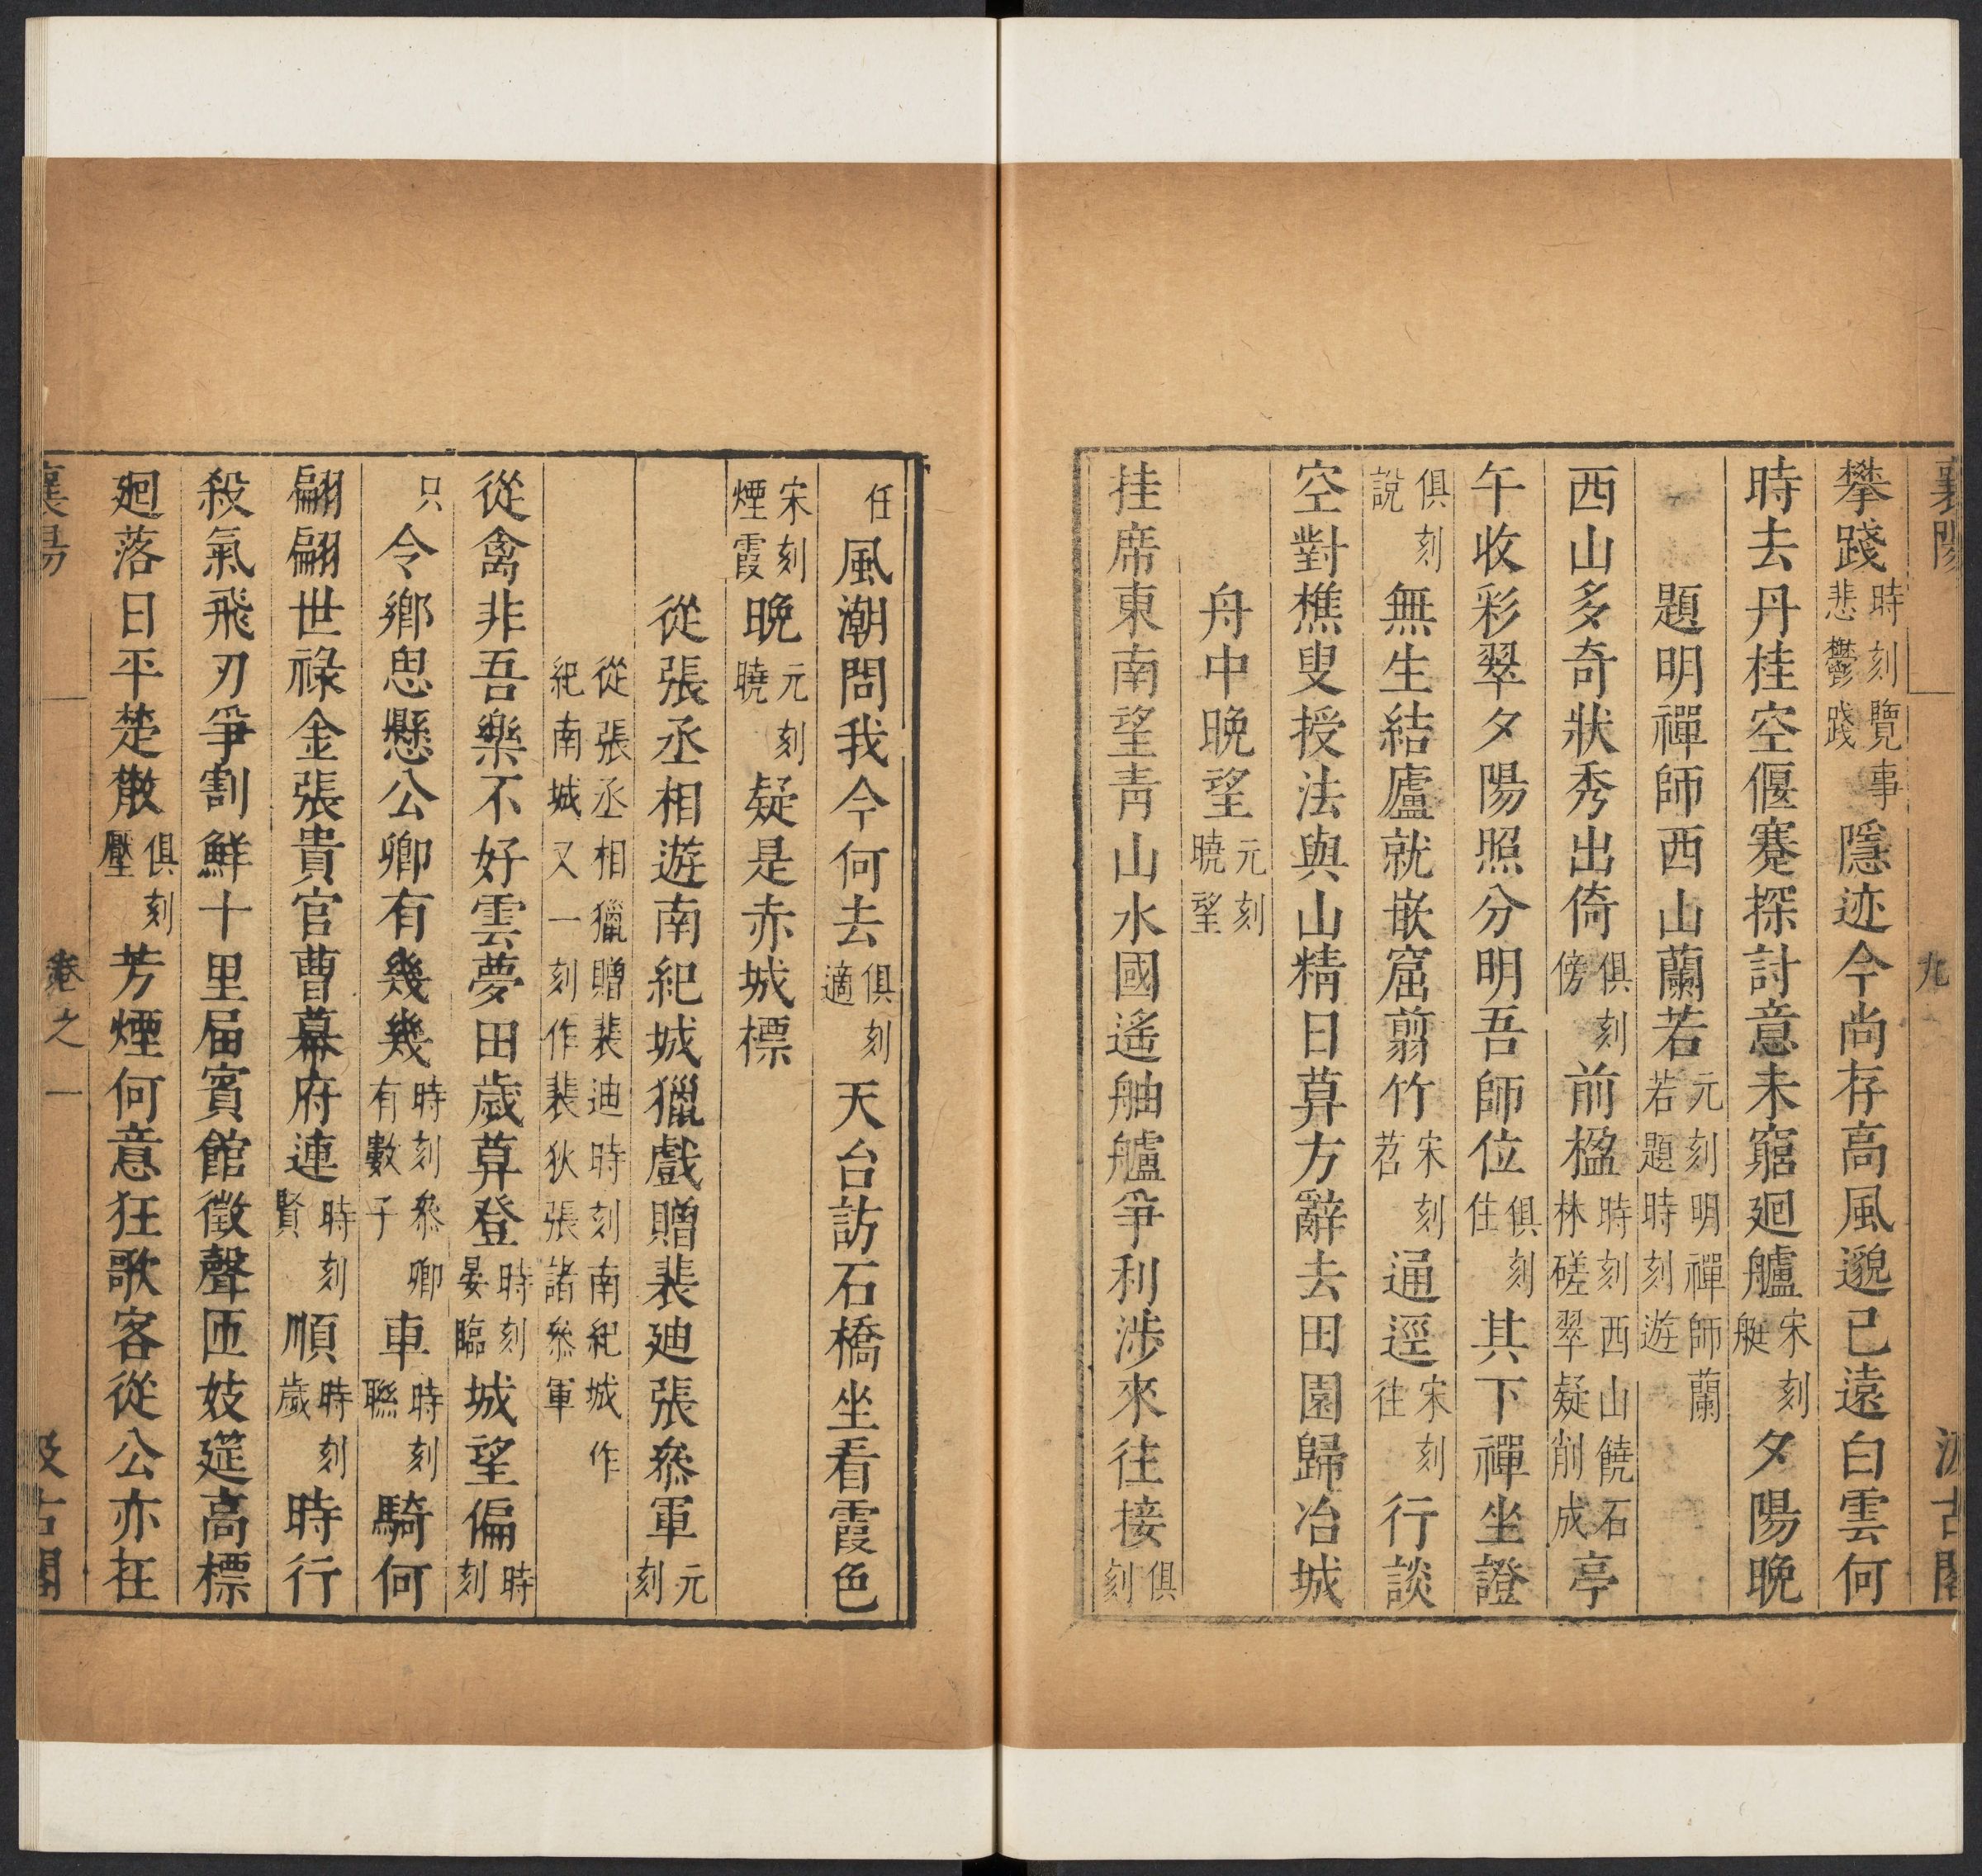 襄陽 九 汲古閣
攀踐時刻覽事悲鬱踐隱迹今尚存高風邈已遠白雲何
時去丹桂空偃蹇探討意未窮廻艫宋刻艇夕陽晚
題明禪師西山蘭若元刻明禪師蘭若題時刻遊
西山多奇狀秀出倚俱刻傍前楹時刻西山饒石林磋翠疑削成亭
午收彩翠夕陽照分明吾師位俱刻住其下禪坐證
俱刻說無生結廬就嵌窟翦竹宋刻苕通逕宋刻往行談
空對樵叟授法與山精日暮方辭去田園歸冶城
舟中晚望元刻曉望
挂席東南望青山水國遙舳艫爭利涉來往接俱刻
任風潮問我今何去俱刻適天台訪石橋坐看霞色
宋刻煙霞晚元刻曉疑是赤城標
從張丞相遊南紀城獵戲贈裴迪張叅軍元刻
從張丞相獵贈裴迪時刻南紀城作紀南城又一刻作裴狄張諸叅軍
從禽非吾樂不好雲夢田歲暮登時刻晏臨城望偏時刻
只令鄉思懸公卿有幾幾時刻叅卿有數子車時刻聯騎何
翩翩世祿金張貴官曹幕府連時刻賢順時刻歲時行
殺氣飛刃爭割鮮十里届賓館徵聲匝妓筵高標
廻落日平楚散俱刻壓芳煙何意狂歌客從公亦在
襄陽 卷之一 汲古閣